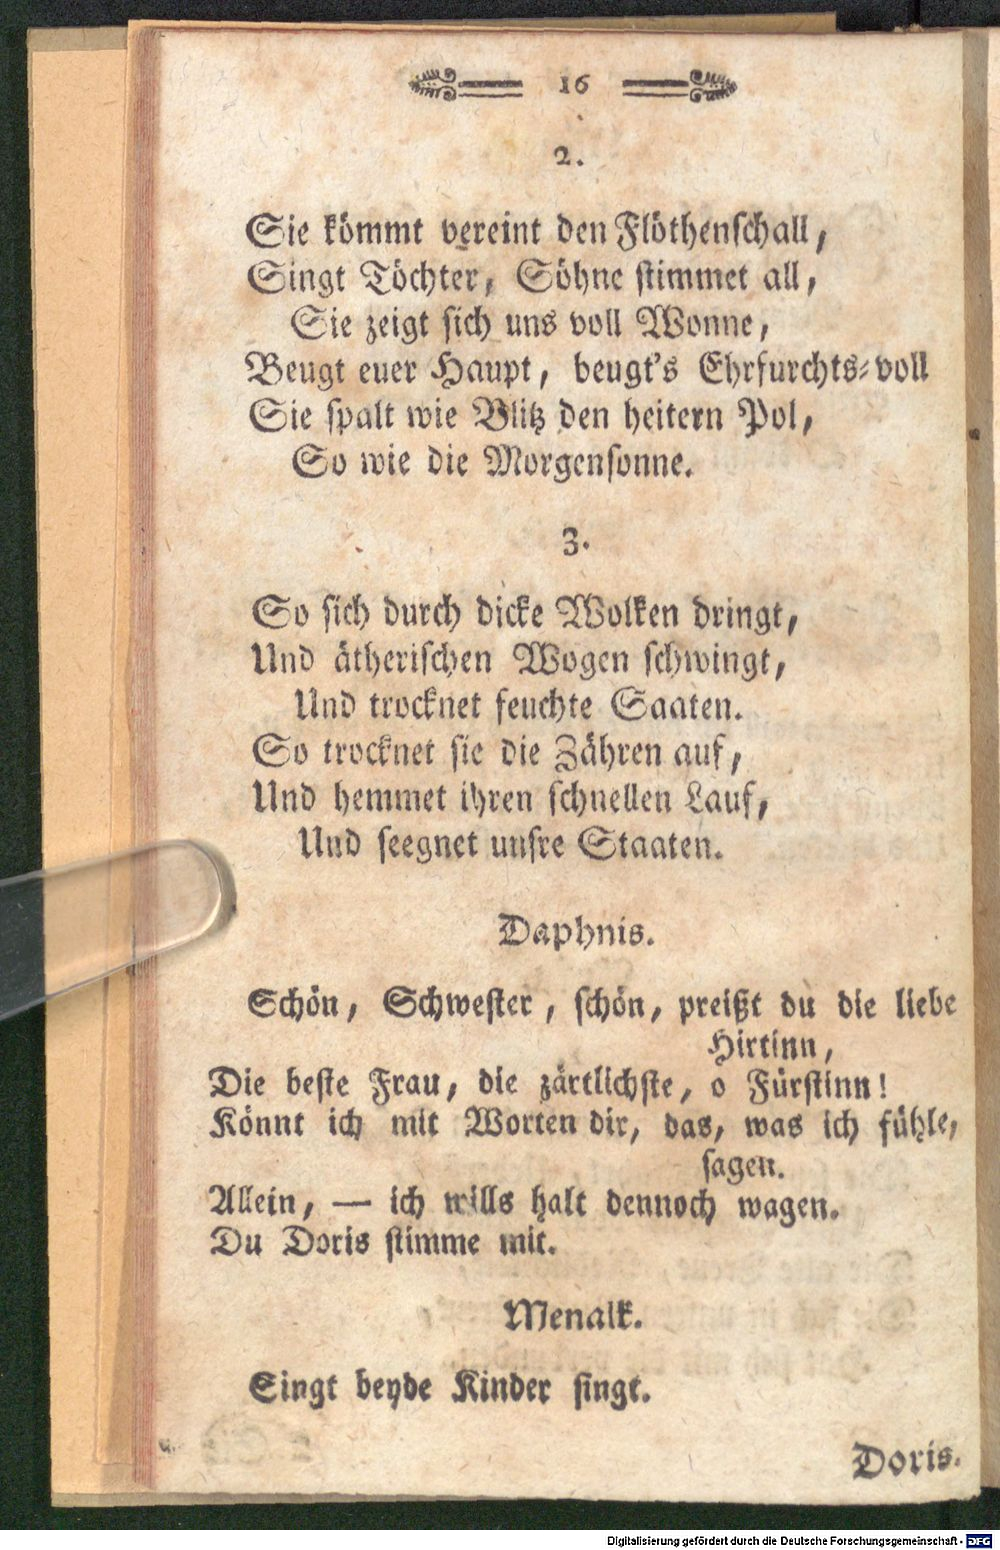 16
2.
Sie kömmt vereint den Flöthenschall,
Singt Töchter, Söhne stimmet all,
Sie zeigt sich uns voll Wonne,
Beugt euer Haupt, beugt's Ehrfurchts-voll
Sie spalt wie Blitz den heitern Pol,
So wie die Morgensonne.
3.
So sich durch dicke Wolken dringt,
Und ätherischen Wogen schwingt,
Und trocknet feuchte Saaten.
So trocknet sie die Zähren auf,
Und hemmet ihren schnellen Lauf,
Und seegnet unsre Staaten.
Daphnis.
Schön, Schwester, schön, preißt du die liebe
Hirtinn,
Die beste Frau, die zärtlichste, o Fürstinn!
Könnt ich mit Worten dir, das, was ich fühle,
sagen.
Allein, — ich wills halt dennoch wagen.
Du Doris stimme mit.
Menalk.
Singt beyde Kinder singt.
Doris.
Digitalisierung gefördert durch die Deutsche Forschungsgemeinschaft - DFG